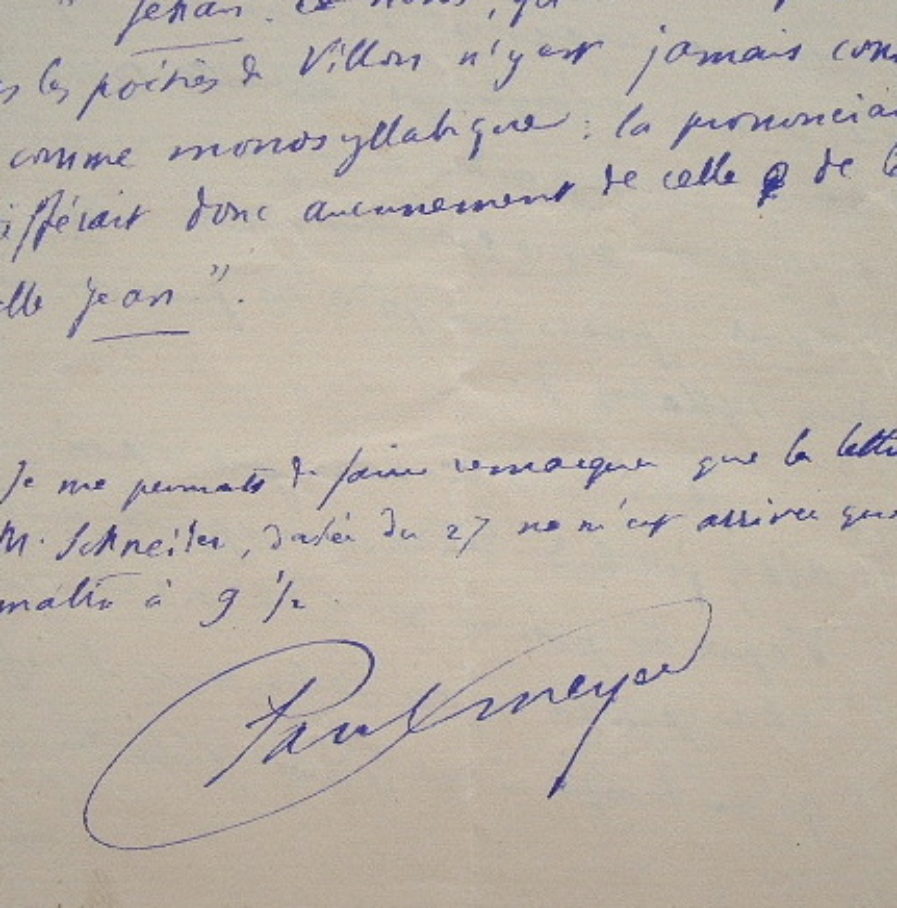 " Jehan. Ce nom, qu
les poésies de Villon n'y est jamais com
comme monosyllabique : la prononcia
ifférait donc aucunement de celle de l
lle Jean ".
Je me permets de faire remarquer que la lettre
M. Schneider, datée du 27 ne m'est arrivée que
matin à 9 1/2
Paul Meyer